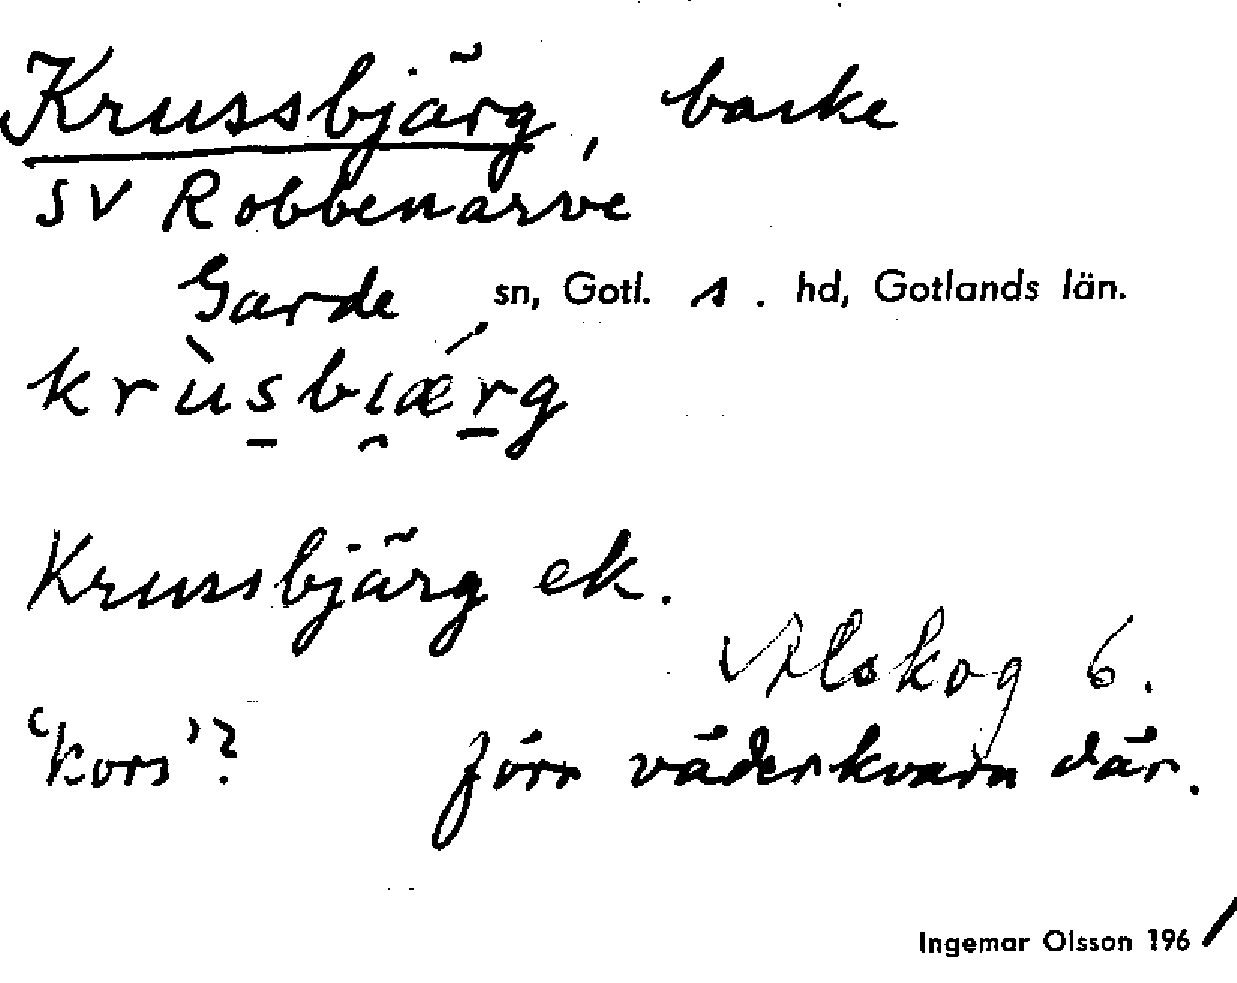 Krussbjärg, backe
SV Robbenarve
Garde sn, Gotl. s. hd, Gotlands län.
krùsbi̯ǽrg
Krussbjärg ek.
Alskog 6.
'kors'? förr väderkvarn där.
Ingemar Olsson 1961